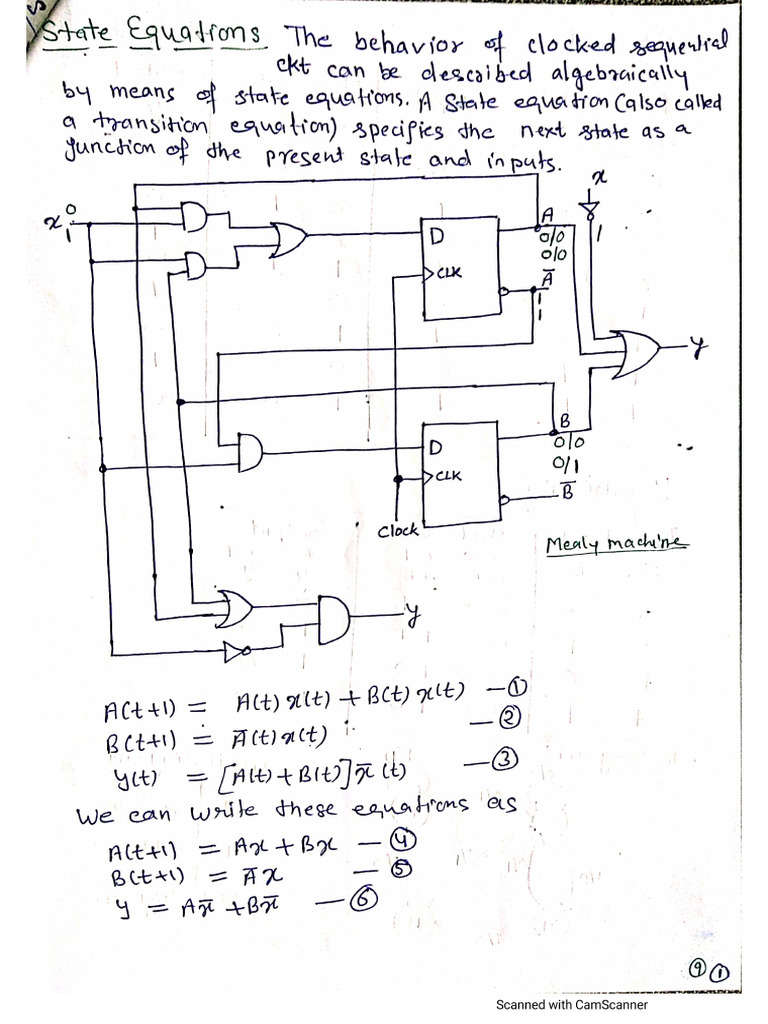 State Equations The behavior of clocked sequential
ckt can be described algebraically
by means of state equations. A State equation (also called
a transition equation) specifies the next state as a
function of the present state and inputs.
x
x 0
1
A
D
0/0
0/0
1
CLK
Ā
1
1
y
B
D
0/0
0/1
CLK
B̄
Clock
Mealy machine
y
A(t+1) = A(t) x(t) + B(t) x(t) — ①
B(t+1) = Ā(t) x(t) — ②
y(t) = [A(t) + B(t)] x̄(t) — ③
We can write these equations as
A(t+1) = Ax + Bx — ④
B(t+1) = Āx — ⑤
y = Ax̄ + Bx̄ — ⑥
⑨ ①
Scanned with CamScanner